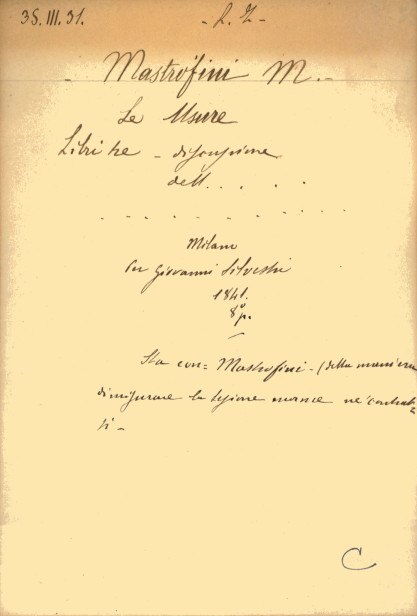 38. III. 31. - L. Z -
- Mastrofini M. -
Le Usure
Libri tre - discussione
dell . . . .
- - - . - . - . . . .
Milano
Per Giovanni Silvestri
1841.
8º p.
Sta con = Mastrofini - (della maniera
di misurare la lesione enorme ne' contrat=
ti -
C